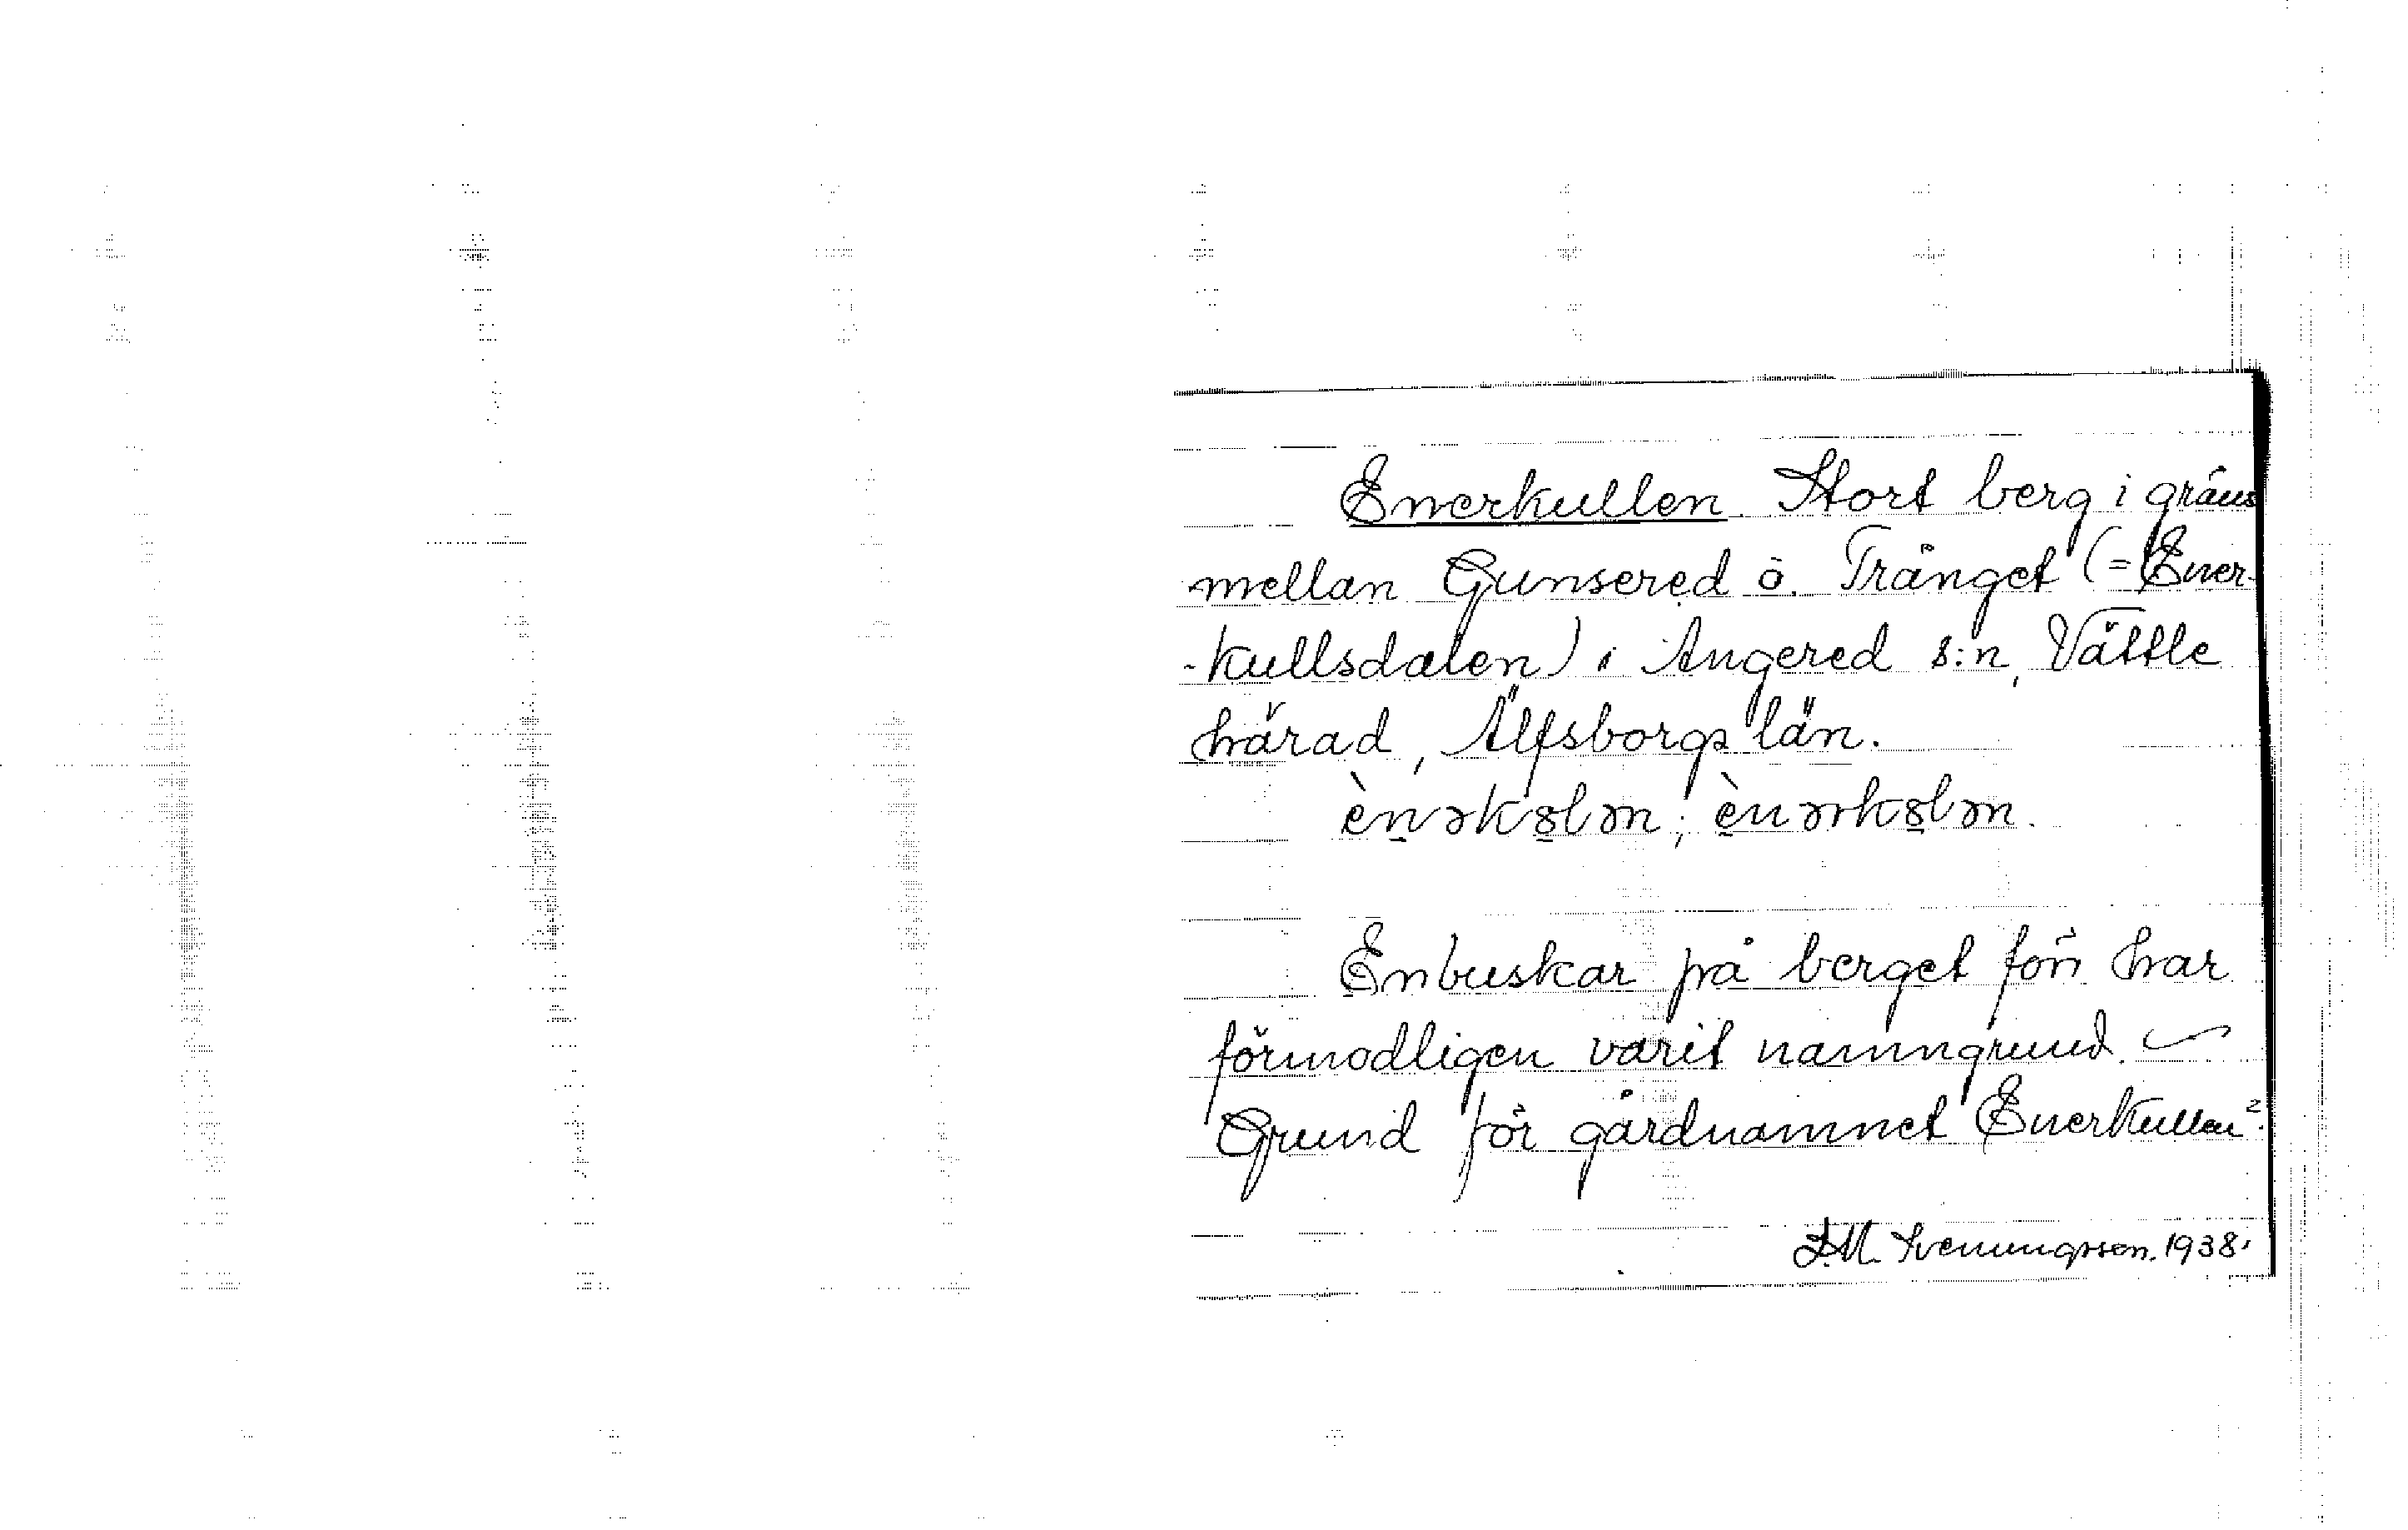 Enerkullen. Stort berg i gräns
mellan Gunsered o. Tränget (= Ener-
-kullsdalen) i Angered s:n, Vättle
härad, Älfsborgs län.
ènəkȣlən; ènərkȣlən.
Enbuskar på berget förr har
förmodligen varit namngrund. ~
Grund för gårdnamnet Enerkullen?
J.M. Svenungsson. 1938.